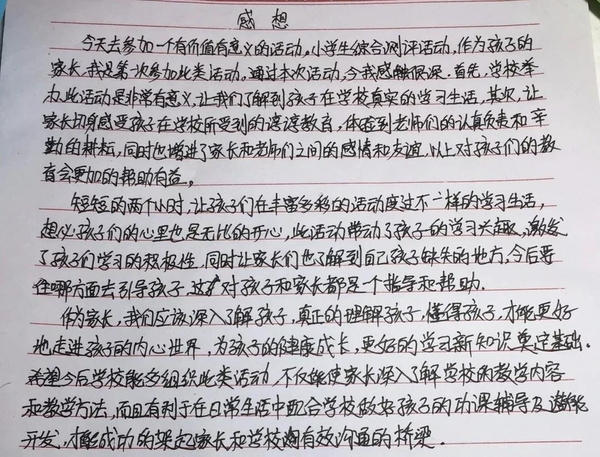 感想
今天去参加一个有价值有意义的活动,小学生综合测评活动,作为孩子的
家长,我是第一次参加此类活动,通过本次活动,令我感触很深.首先,学校举
办此活动是非常有意义,让我们了解到孩子在学校真实的学习生活,其次,让
家长切身感受孩子在学校所受到的谆谆教育,体验到老师们的认真负责和辛
勤的耕耘,同时也增进了家长和老师们之间的感情和友谊,以上对孩子们的教
育会更加的帮助有益。
短短的两个小时,让孩子们在丰富多彩的活动度过不一样的学习生活,
想必孩子们的心里也是无比的开心,此活动带动了孩子的学习兴趣,激发
了孩子们学习的积极性,同时让家长们也了解到自己孩子缺失的地方,今后要
往哪方面去引导孩子,这对孩子和家长都是一个指导和帮助.
作为家长,我们应该深入了解孩子,真正的理解孩子,懂得孩子,才能更好
地走进孩子的内心世界,为孩子的健康成长,更好的学习新知识奠定基础.
希望今后学校能多组织此类活动,不仅能使家长深入了解学校的教学内容
和教学方法,而且有利于在日常生活中配合学校做好孩子的功课辅导及潜能
开发,才能成功的架起家长和学校间有效沟通的桥梁.